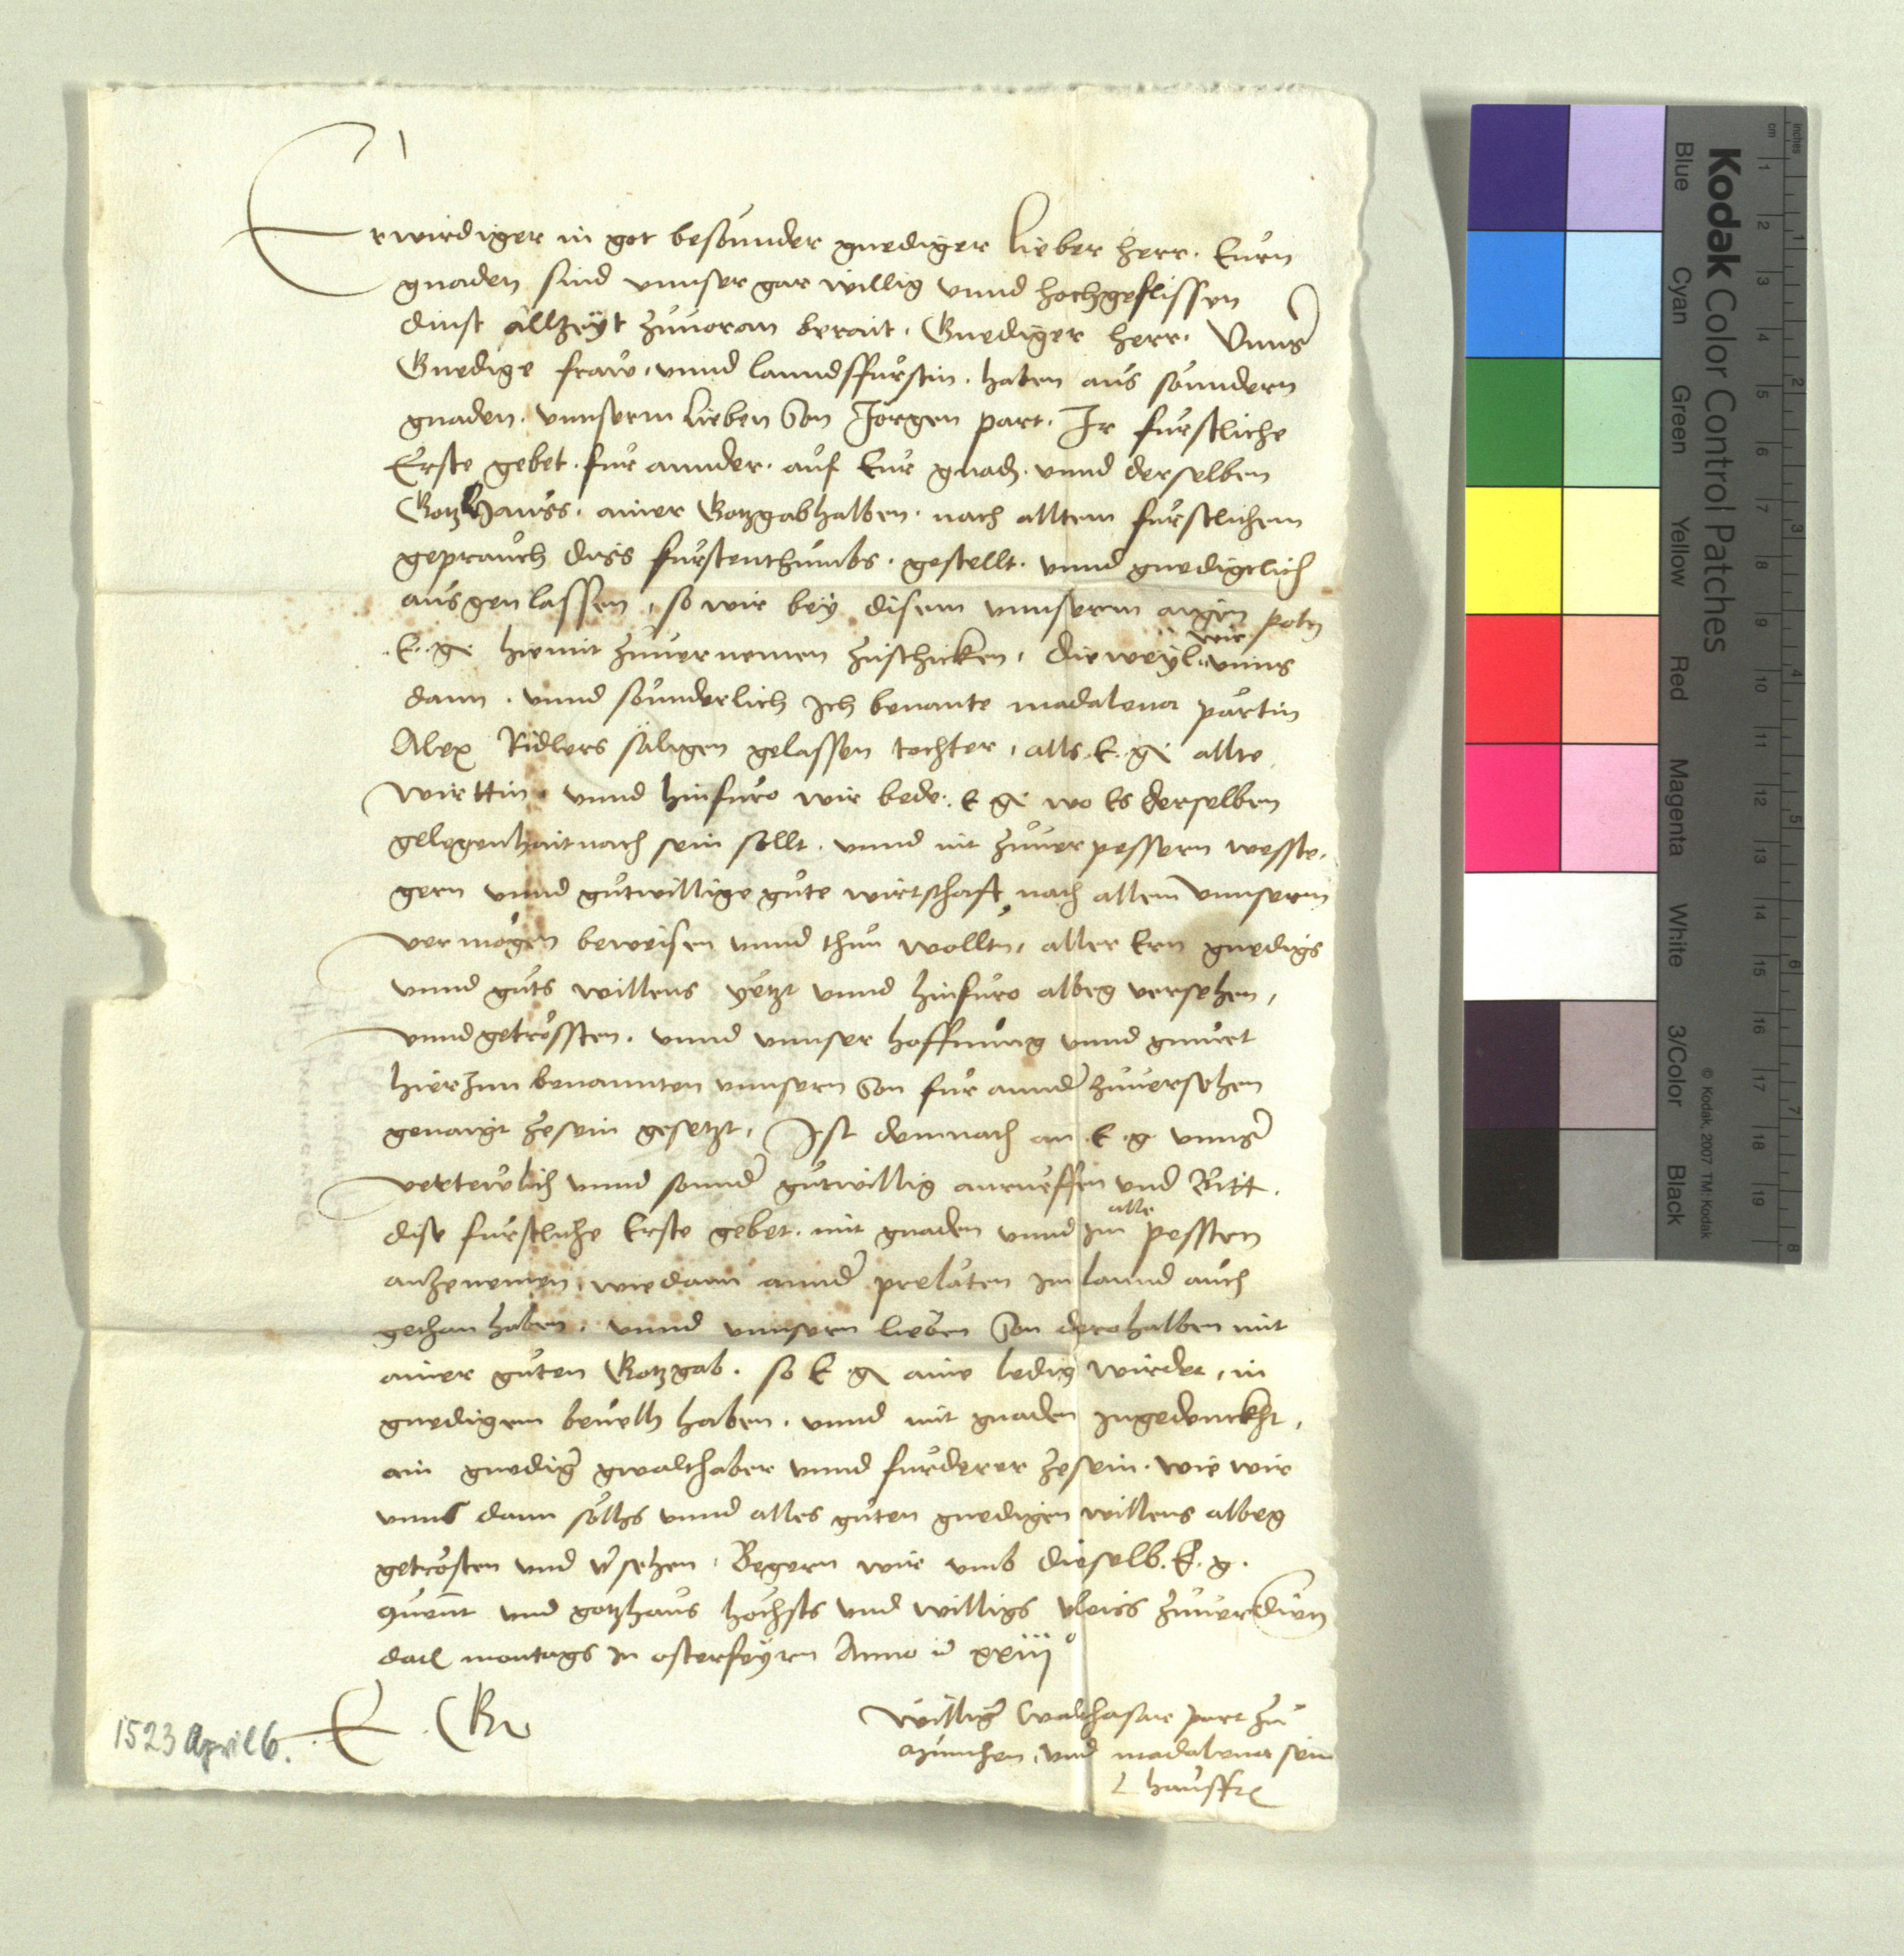 Erwirdiger in got besounder gnediger lieber herr. Eurn
gnaden sind unnser gar willig unnd hochgeflissen
dinst allzeyt zuvoran berait. Gnediger herr. Unnser
Gnedige fraw. unnd lanndsffurstin. haben aus sounndern
gnaden. unnserm lieben Son Jorgen part. Ir furstliche
Erste gebet. fur annder. auf Eur gnad. unnd derselben
Gotzhawss. ainer Gotzgabhalben. nach alltem furstlichem
geprauch diss furstenthumbs. gestellt. unnd gnedigclich
ausgen lassen, so wir bey disem unnserm aigen potn
E. g. hiemit zuvernemen zuschicken, dieweyl wir unns
dann. unnd sounderlich Ich benante madalena partin
Alex Ridlers säligen gelassen tochter, alls E. g. allte
wirttin. unnd hinfuro wir bede. E g. wo Es derselben
gelegenhait nach sein sollt. unnd nit zuverpessern wesste.
gern unnd gutwillige gute wirtschaft nach allem unnserm
vermogen beweisen unnd thun wolltn, aller Ern gnedigs
unnd guts willens yetzt unnd hinfuro albeg versehen,
unnd getrossten. unnd unnser hoffnung unnd gmuet
hierInn benannten unnsern Son fur annder zuversehen
genaigt zesein gesetzt, Ist demnach an E. g. unnser
vertewlich unnd sonnder gutwillig anrueffen und Bitt.
dise furstliche Erste gebet. mit gnaden unnd Im alle pessten
anzenemen, wie dann annder prelaten im lannd auch
gethan haben. unnd unnsern lieben Son derohalben mit
ainer guten Gotzgab. so E g. aine ledig wirdet, in
gnedigem bevelh haben. unnd mit gnaden Ingedenckht,
ain gnediger gwalthaber unnd furderer zesein. wie wir
unns dann sollhs unnd alles guten gnedigen willens albeg
getrosten und versehen. Begern wir umb dieselb. E. g.
Convent und gotzhaus hochsts und willigs vleiss zuverdien
datum montags In osterfeyren Anno im xxiii°
E. G.
willig Walthasar part zu
Munchen. und madalena sein
hausfr
1523 April 6.
Kodak Color Control Patches
Blue Cyan Green Yellow Red Magenta White 3/Color Black
© Kodak, 2007 TM: Kodak
cm 1 2 3 4 5 6 7 8 9 10 11 12 13 14 15 16 17 18 19
Inches 1 2 3 4 5 6 7 8